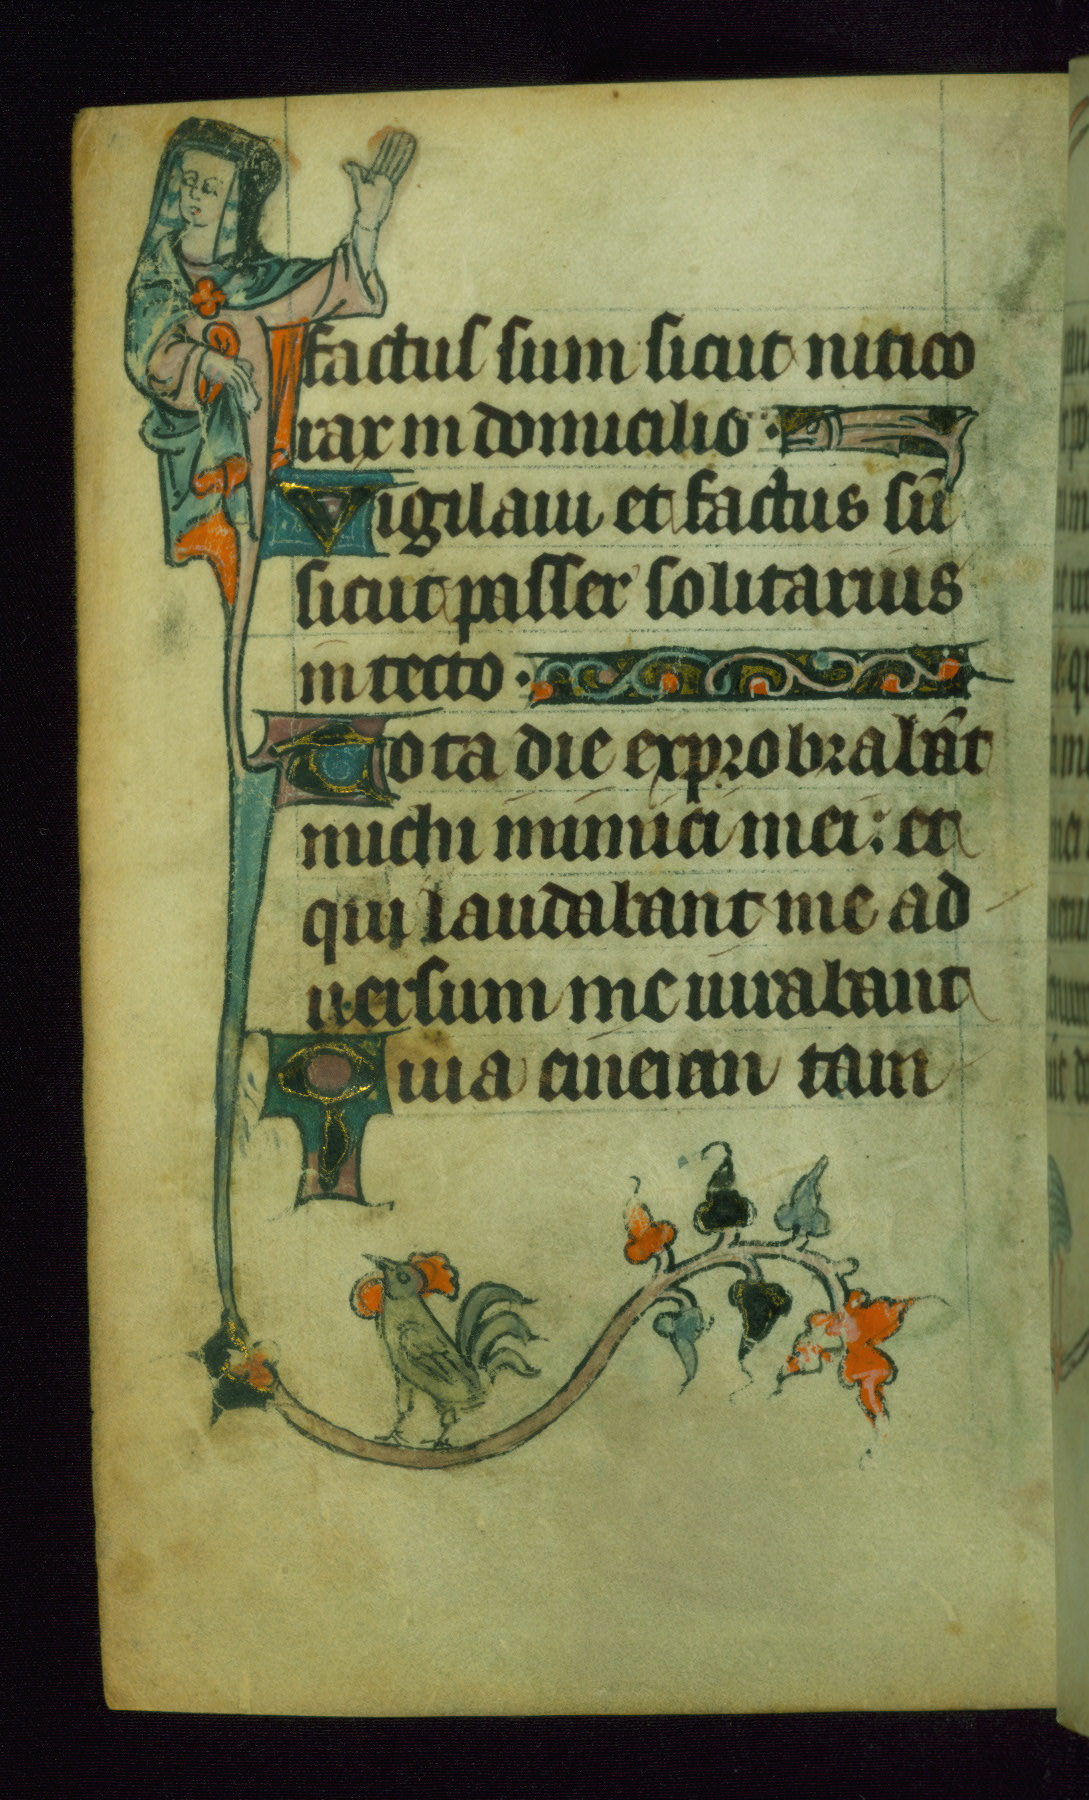 factus sum sicut nitico
rax in domicilio ·
Vigilaui et factus sū
sicut passer solitarius
in tecto ·
Tota die exprobrabāt
michi inimici mei: et
qui laudabant me ad
uersum me iurabant
Quia cinerem tam